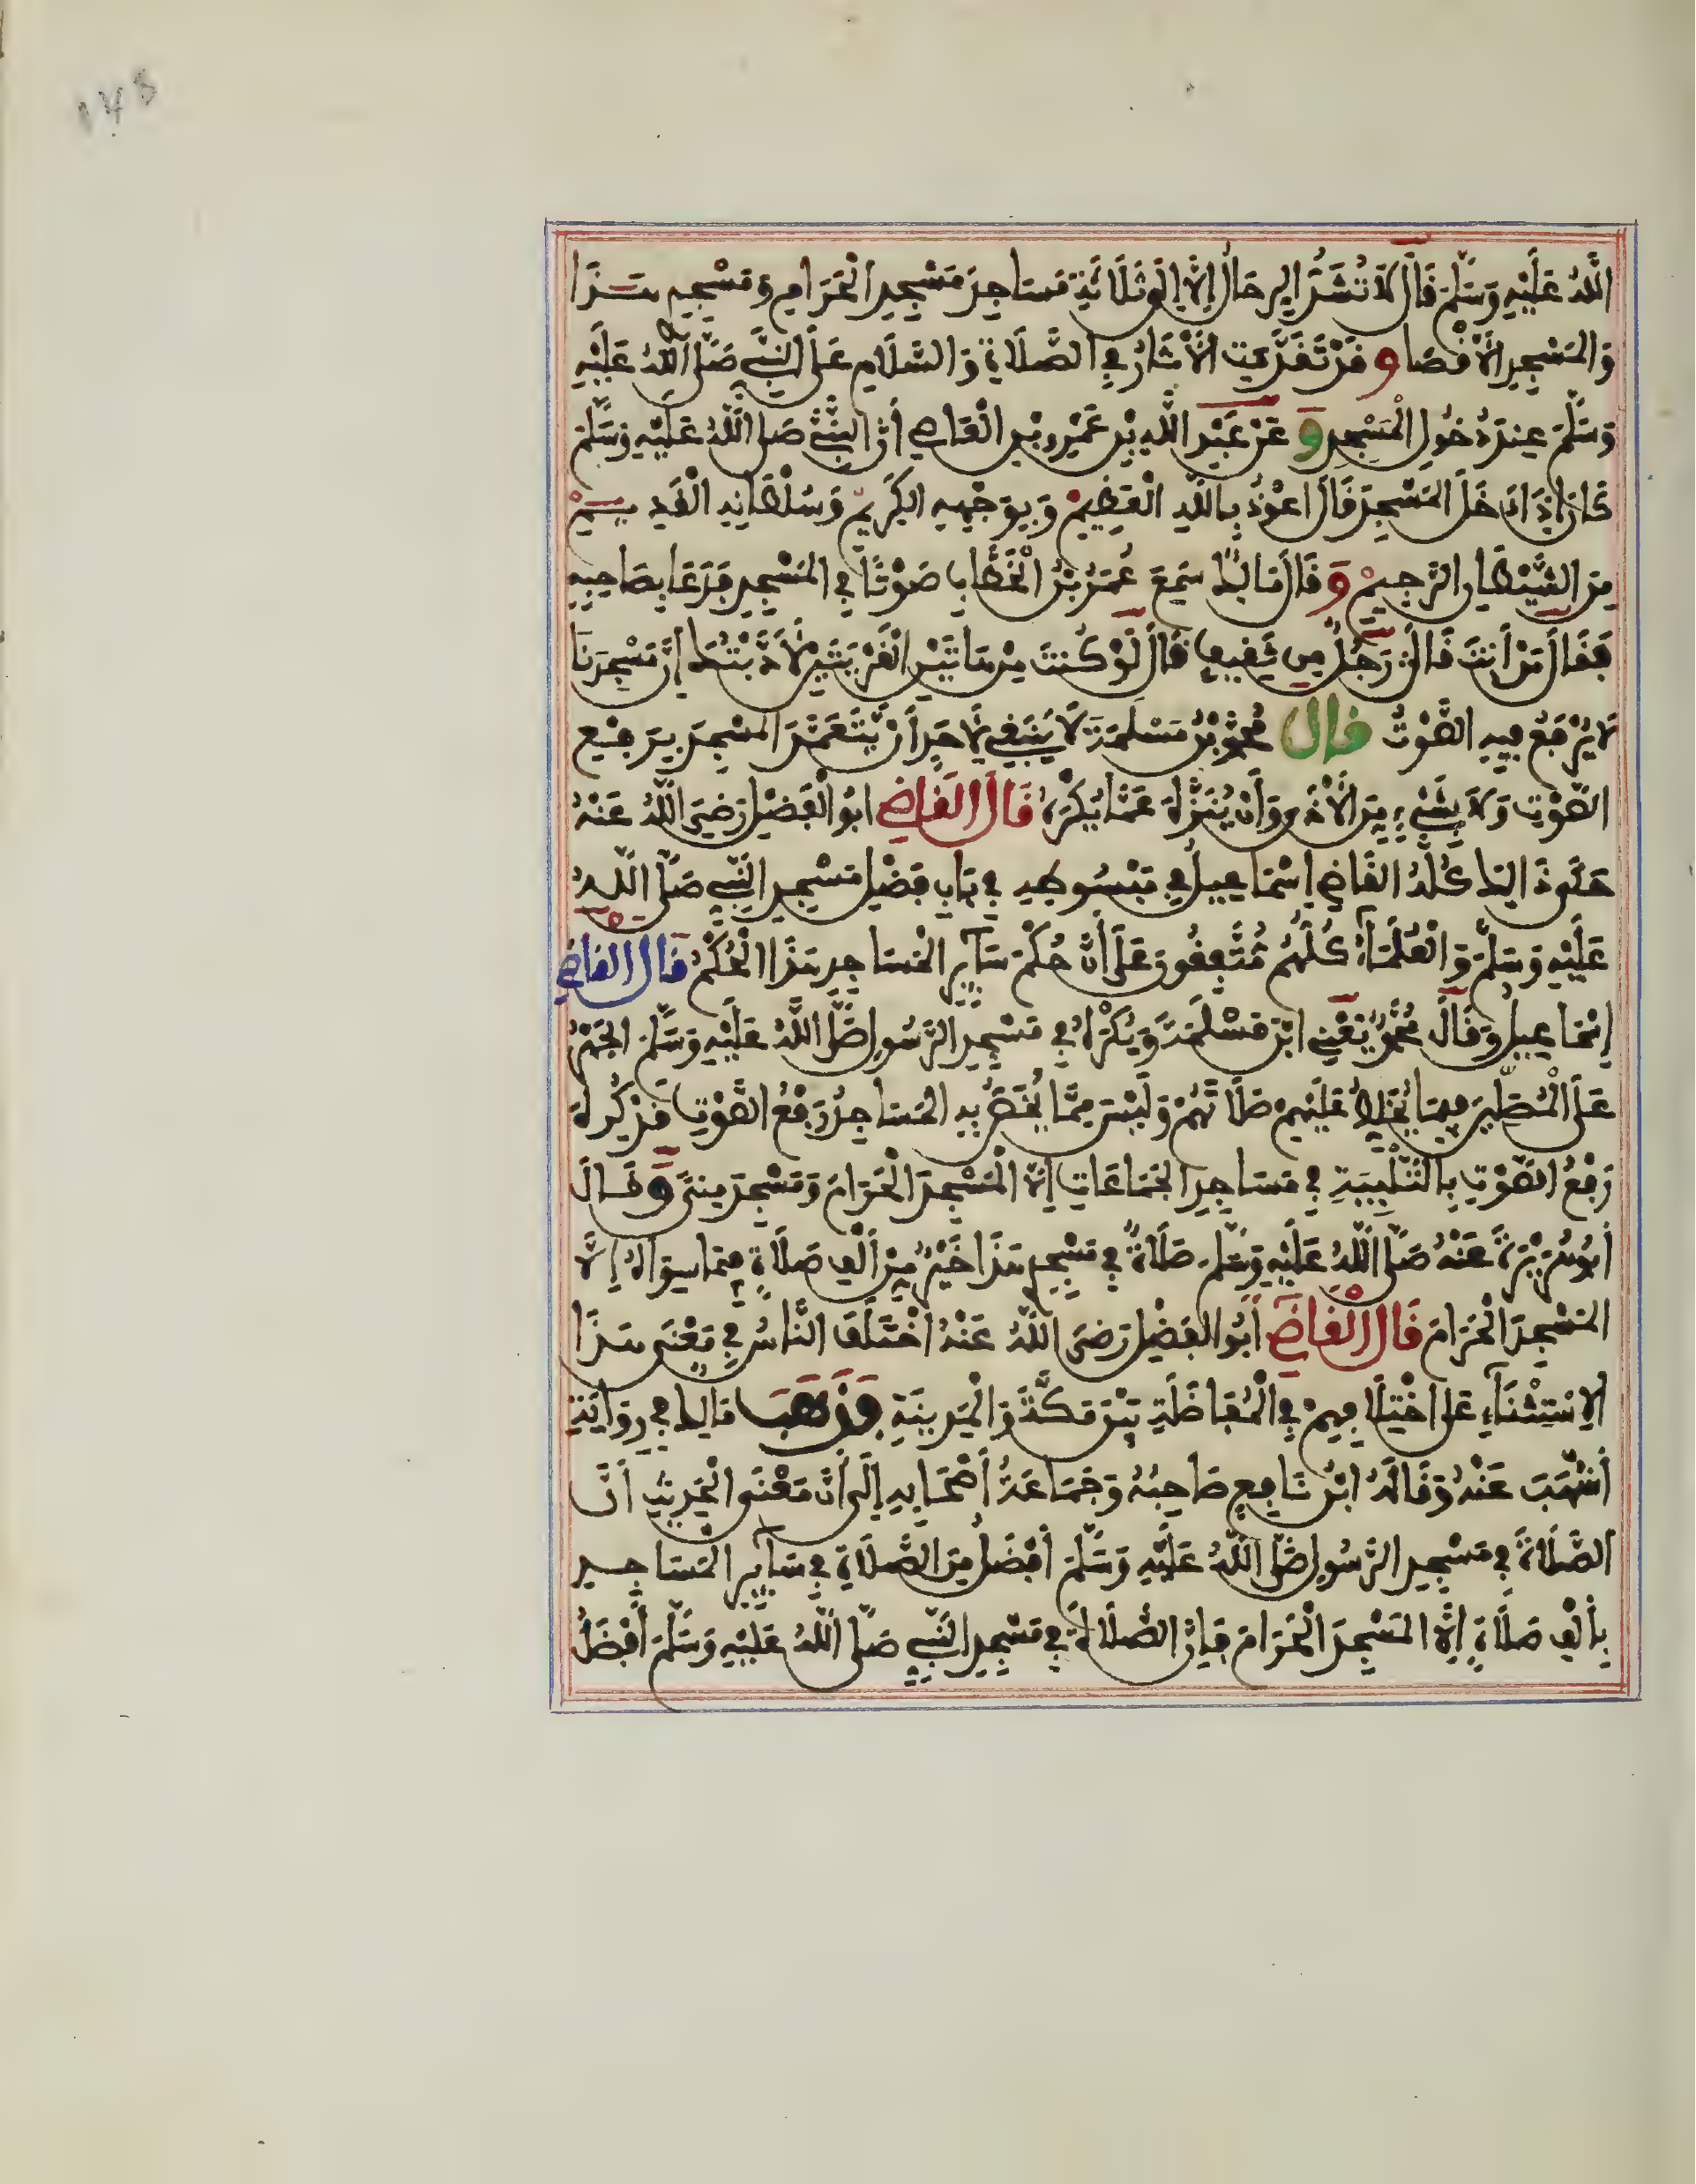 ١٧٨
اللَّهُ عَلَيْهِ وَسَلَّمَ قَالَ لَا تُشَدُّ الرِّحَالُ إِلَّا إِلَى ثَلَاثَةِ مَسَاجِدَ مَسْجِدِ الْحَرَامِ وَمَسْجِدِي هَذَا
وَالْمَسْجِدِ الْأَقْصَا وَقَدْ تَقَدَّمَتِ الْأَثَارُ فِي الصَّلَاةِ وَالسَّلَامِ عَلَى النَّبِيِّ صَلَّى اللَّهُ عَلَيْهِ
وَسَلَّمَ عِنْدَ دُخُولِ الْمَسْجِدِ وَعَنْ عَبْدِ اللَّهِ بْنِ عَمْرِو بْنِ الْعَاصِي أَنَّ النَّبِيَّ صَلَّى اللَّهُ عَلَيْهِ وَسَلَّمَ
كَانَ إِذَا دَخَلَ الْمَسْجِدَ قَالَ أَعُوذُ بِاللَّهِ الْعَظِيمِ وَبِوَجْهِهِ الْكَرِيمِ وَسُلْطَانِهِ الْقَدِيمِ
مِنَ الشَّيْطَانِ الرَّجِيمِ وَقَالَ مَالِكٌ سَمِعَ عُمَرُ بْنُ الْخَطَّابِ صَوْتًا فِي الْمَسْجِدِ فَدَعَا بِصَاحِبِهِ
فَقَالَ مَنْ أَنْتَ قَالَ رَجُلٌ مِنْ ثَقِيفٍ قَالَ لَوْ كُنْتَ مِنْ هَاتَيْنِ الْقَرْيَتَيْنِ لَأَدَّبْتُكَ إِنَّ مَسْجِدَنَا
لَا يُرْفَعُ فِيهِ الصَّوْتُ قَالَ مُحَمَّدُ بْنُ مَسْلَمَةَ لَا يَنْبَغِي لِأَحَدٍ أَنْ يَتَعَمَّدَ الْمَسْجِدَ بِرَفْعِ
الصَّوْتِ وَلَا بِشَيْءٍ مِنَ الْأَذَى وَأَنْ يُنَزَّهَ عَمَّا يُكْرَهُ قَالَ الْقَاضِي أَبُو الْفَضْلِ رَضِيَ اللَّهُ عَنْهُ
حَكَى ذَالِكَ كُلَّهُ الْقَاضِي إِسْمَاعِيلُ فِي مَبْسُوطِهِ فِي بَابِ فَضْلِ مَسْجِدِ النَّبِيِّ صَلَّى اللَّهُ
عَلَيْهِ وَسَلَّمَ وَالْعُلَمَاءُ كُلُّهُمْ مُتَّفِقُونَ عَلَى أَنَّ حُكْمَ سَائِرِ الْمَسَاجِدِ هَذَا الْحُكْمُ قَالَ الْقَاضِي
إِسْمَاعِيلُ وَقَالَ مُحَمَّدٌ يَعْنِي ابْنَ مَسْلَمَةَ وَيُكْرَهُ فِي مَسْجِدِ الرَّسُولِ صَلَّى اللَّهُ عَلَيْهِ وَسَلَّمَ الْجَهْرُ
عَلَى الْمُصَلِّينَ فِيمَا يُخَلِّطُ عَلَيْهِمْ صَلَاتَهُمْ وَلَيْسَ مِمَّا يُخَصُّ بِهِ الْمَسَاجِدُ رَفْعُ الصَّوْتِ قَدْ كُرِهَ
رَفْعُ الصَّوْتِ بِالتَّلْبِيَةِ فِي مَسَاجِدِ الْجَمَاعَاتِ إِلَّا الْمَسْجِدَ الْحَرَامَ وَمَسْجِدَ مِنًى وَقَالَ
أَبُو هُرَيْرَةَ عَنْهُ صَلَّى اللَّهُ عَلَيْهِ وَسَلَّمَ صَلَاةٌ فِي مَسْجِدِي هَذَا خَيْرٌ مِنْ أَلْفِ صَلَاةٍ فِيمَا سِوَاهُ إِلَّا
الْمَسْجِدَ الْحَرَامَ قَالَ الْقَاضِي أَبُو الْفَضْلِ رَضِيَ اللَّهُ عَنْهُ اخْتَلَفَ النَّاسُ فِي مَعْنَى هَذَا
الِاسْتِثْنَاءِ عَلَى اخْتِلَافِهِمْ فِي الْمُفَاضَلَةِ بَيْنَ مَكَّةَ وَالْمَدِينَةِ فَذَهَبَ مَالِكٌ فِي رِوَايَةِ
أَشْهَبَ عَنْهُ وَقَالَهُ ابْنُ نَافِعٍ صَاحِبُهُ وَجَمَاعَةُ أَصْحَابِهِ إِلَى أَنَّ مَعْنَى الْحَدِيثِ أَنَّ
الصَّلَاةَ فِي مَسْجِدِ الرَّسُولِ صَلَّى اللَّهُ عَلَيْهِ وَسَلَّمَ أَفْضَلُ مِنَ الصَّلَاةِ فِي سَائِرِ الْمَسَاجِدِ
بِأَلْفِ صَلَاةٍ إِلَّا الْمَسْجِدَ الْحَرَامَ فَإِنَّ الصَّلَاةَ فِي مَسْجِدِ النَّبِيِّ صَلَّى اللَّهُ عَلَيْهِ وَسَلَّمَ أَفْضَلُ